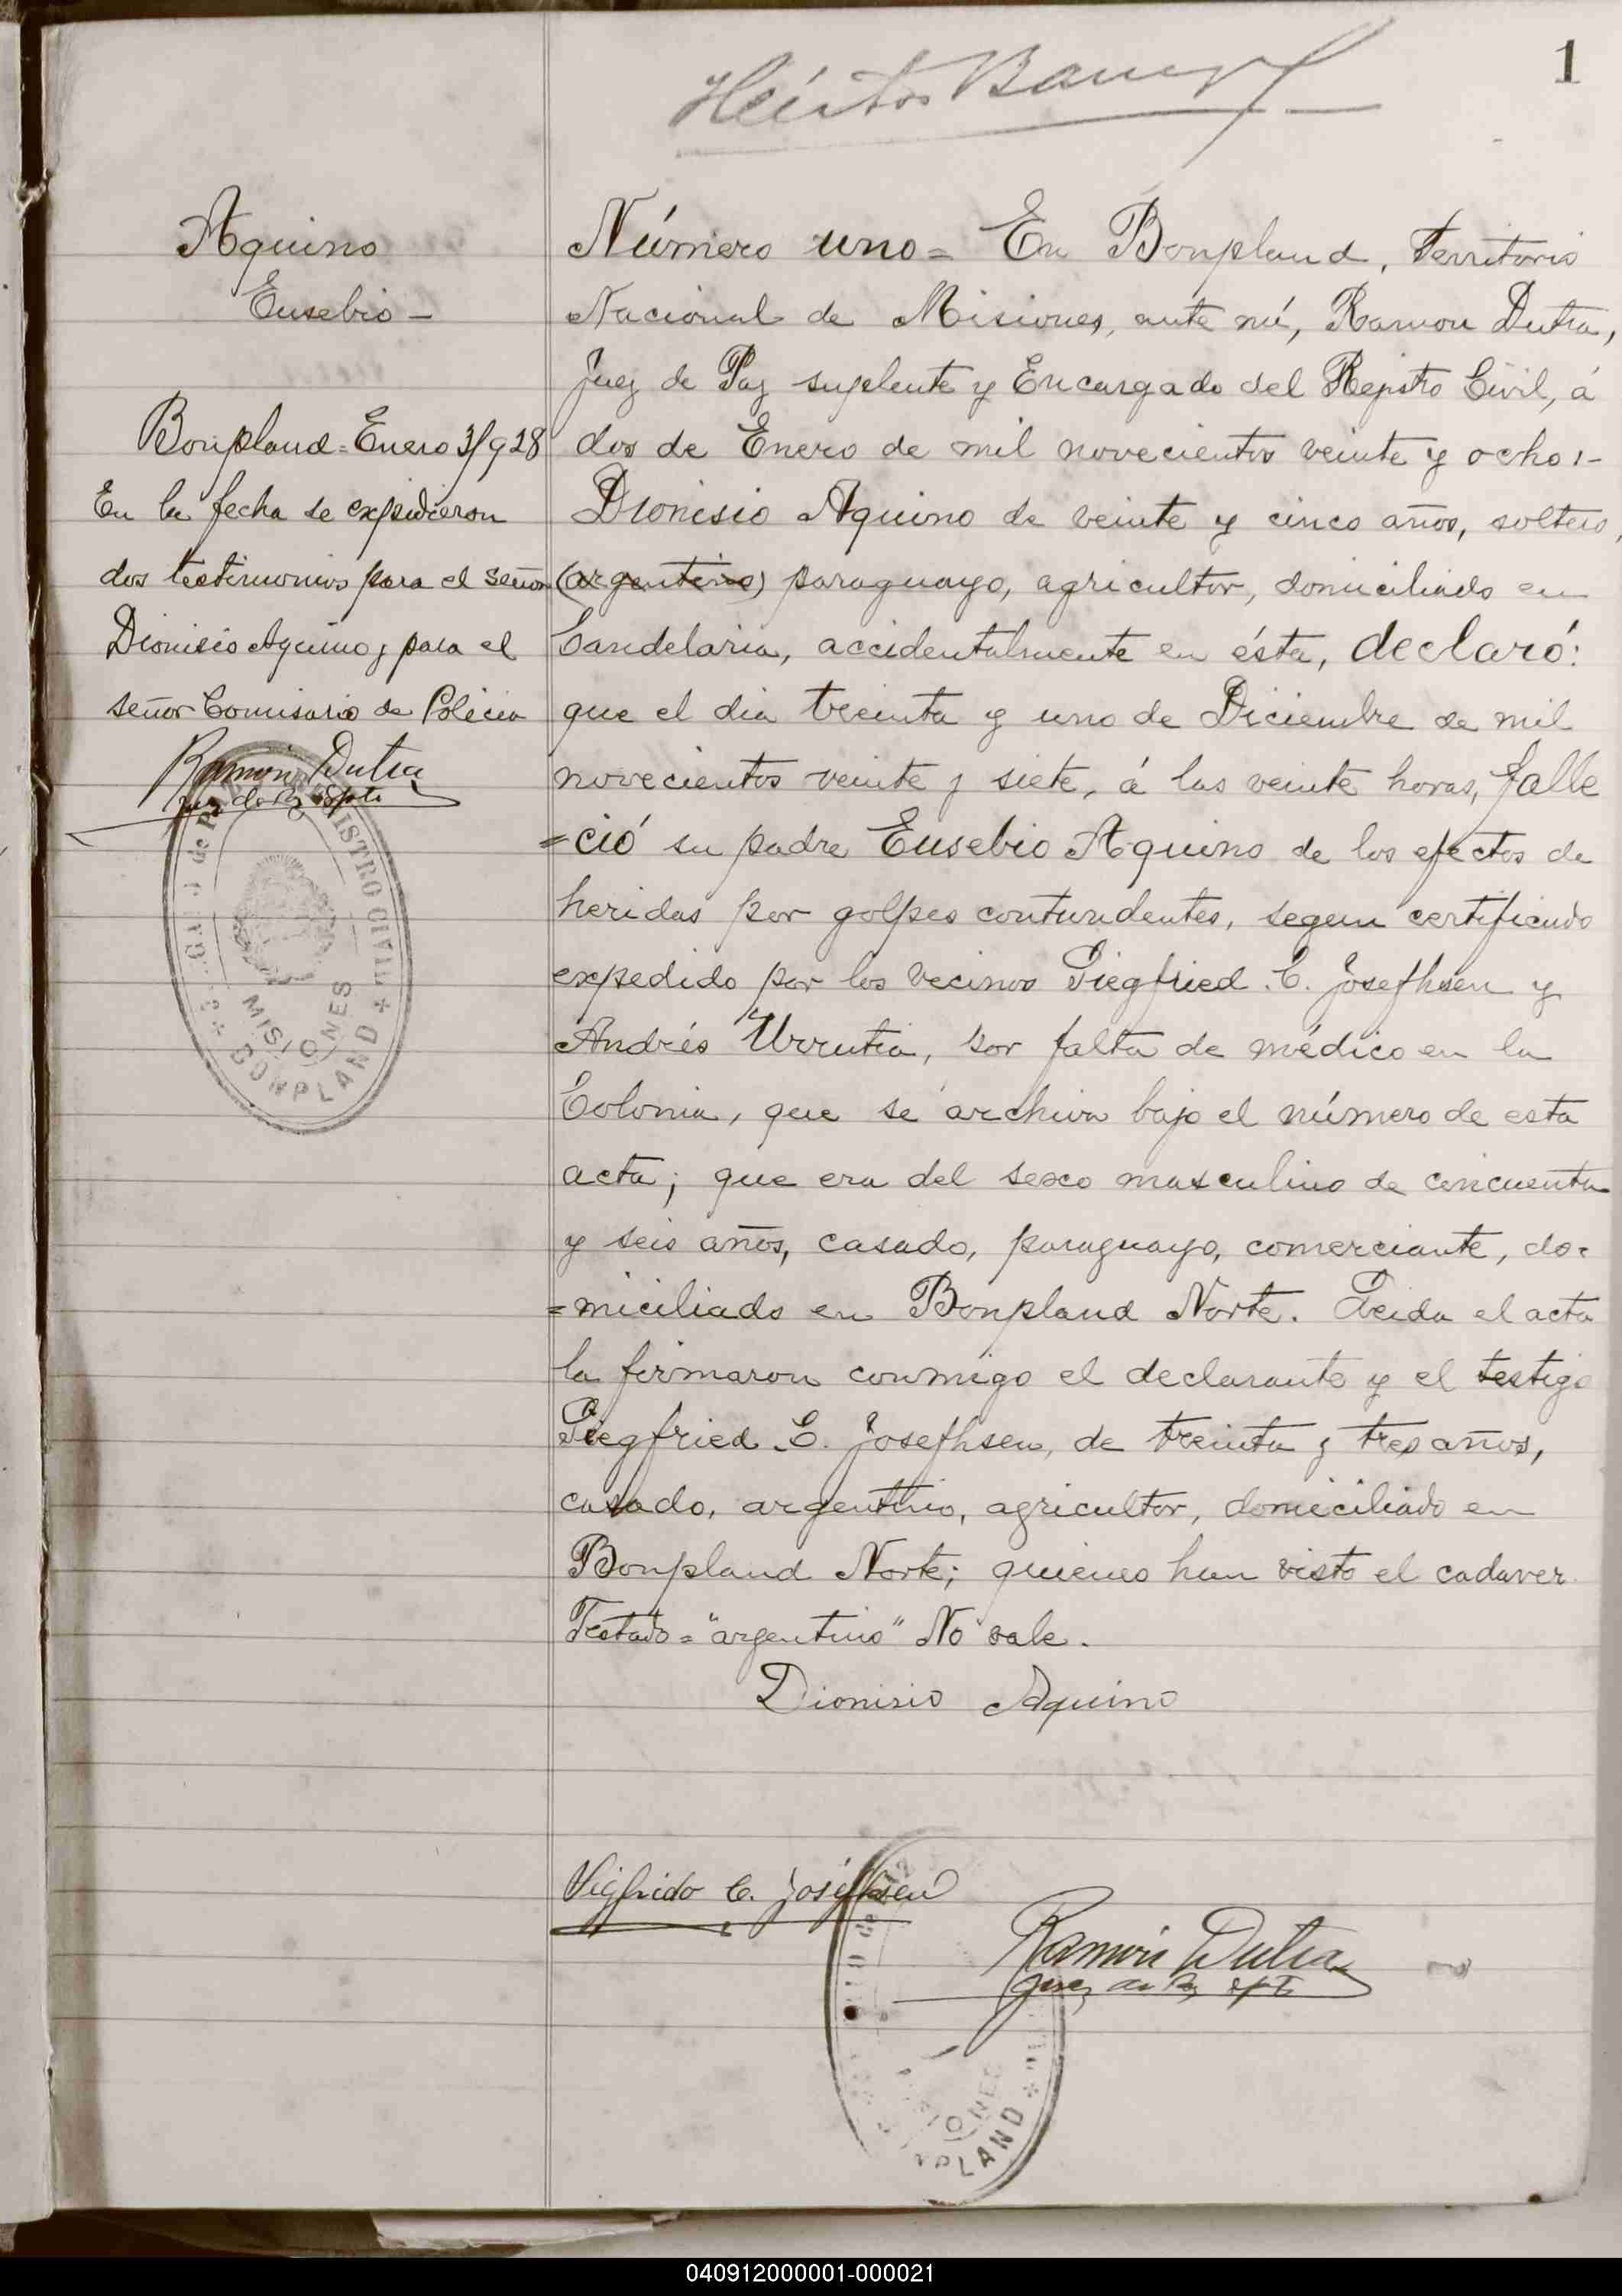 1
Aquino
Eusebio -
Bonpland = Enero 3/928
En la fecha se expidieron
dos testimonios para el señor
Dionisio Aquino y para el
señor Comisario de Policia
Ramón Dutra
Juez de Paz Splte
REGISTRO CIVIL
MISIONES
BONPLAND
Número uno = En Bonpland, Territorio
Nacional de Misiones, ante mí, Ramon Dutra,
Juez de Paz suplente y Encargado del Rejistro Civil, á
dos de Enero de mil novecientos veinte y ocho:-
Dionisio Aquino de veinte y cinco años, soltero,
(argentino) paraguayo, agricultor, domiciliado en
Candelaria, accidentalmente en ésta, declaró:
que el dia treinta y uno de Diciembre de mil
novecientos veinte y siete, á las veinte horas, falle
=ció su padre Eusebio Aquino de los efectos de
heridas por golpes contundentes, segun certificado
expedido por los vecinos Siegfried C. Josephsen y
Andrés Urrutia, por falta de médico en la
Colonia, que se archiva bajo el número de esta
acta; que era del sexo masculino de cincuenta
y seis años, casado, paraguayo, comerciante, do=
=miciliado en Bonpland Norte. Leida el acta
la firmaron conmigo el declarante y el testigo
Siegfried C. Josephsen, de treinta y tres años,
casado, argentino, agricultor, domiciliado en
Bonpland Norte; quienes han visto el cadaver.
Testado = "argentino" No vale.
Dionisio Aquino
Sigfrido C. Joséphsen
Ramón Dutra
Juez de Paz splte
MISIONES
BONPLAND
040912000001-000021